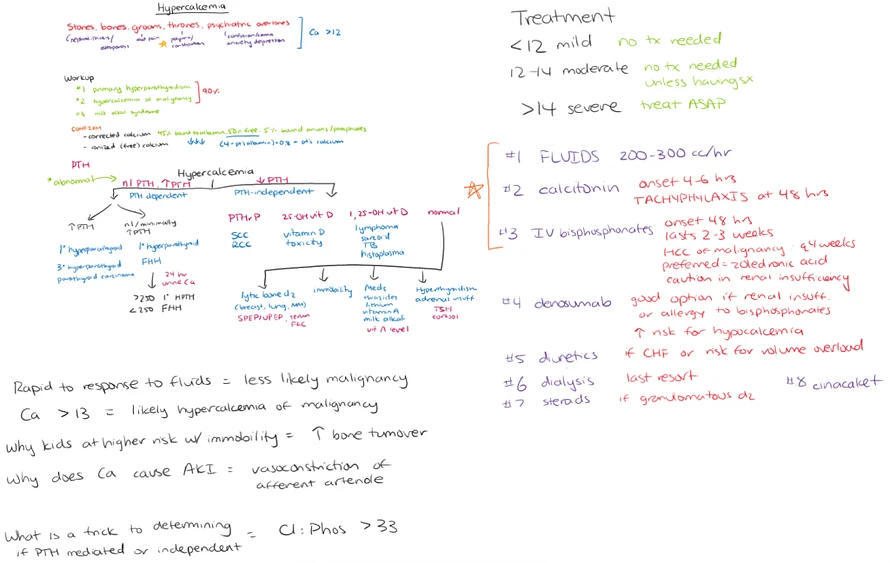 Hypercalcemia
Stones, bones, groans, thrones, psychiatric overtones
Ca >12
Workup
#1 primary hyperparathyroidism
#2 hypercalcemia of malignancy
#3 milk alkali syndrome
90%
confirm
- corrected calcium 45% bound to albumin, 50% free, 5% bound anions/phosphates
- ionized (free) calcium (4-pt's albumin) × 0.8 + pt's calcium
PTH
Hypercalcemia
*abnormal
nl PTH, ↑PTH
↓ PTH
PTH dependent
PTH-independent
↑PTH
nl/minimally ↑PTH
1° hyperparathyroid
3° hyperparathyroid
parathyroid carcinoma
1° hyperparathyroid
FHH
24 hr
urine Ca
>250 1° HPTH
<250 FHH
PTHrP
SCC
RCC
25-OH vit D
vitamin D
toxicity
1,25-OH vit D
lymphoma
sarcoid
TB
histoplasma
normal
lytic bone dz
(breast, lung, MM)
SPEP/UPEP, serum
FLC
immobility
Meds
thiazides
lithium
vitamin A
milk alkali
vit A level
Hyperthyroidism
adrenal insuff
TSH
cortisol
Rapid to response to fluids = less likely malignancy
Ca >13 = likely hypercalcemia of malignancy
Why kids at higher risk w/ immobility = ↑ bone turnover
Why does Ca cause AKI = vasoconstriction of
afferent arteriole
What is a trick to determining
if PTH mediated or independent = Cl:Phos >33
Treatment
<12 mild no tx needed
12-14 moderate no tx needed
unless having sx
>14 severe treat ASAP
#1 FLUIDS 200-300 cc/hr
#2 calcitonin onset 4-6 hrs
TACHYPHYLAXIS at 48 hrs
#3 IV bisphosphonates onset 48 hrs
lasts 2-3 weeks
HCC of malignancy q4 weeks
preferred = zoledronic acid
caution in renal insufficiency
#4 denosumab good option if renal insuff.
or allergy to bisphosphonates
↑ risk for hypocalcemia
#5 diuretics if CHF or risk for volume overload
#6 dialysis last resort
#7 steroids if granulomatous dz
#8 cinacalcet